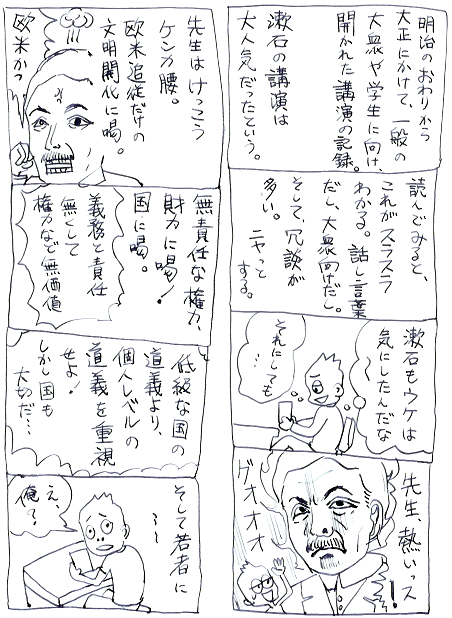 明治のおわりから
大正にかけて、一般の
大衆や学生に向け、
開かれた講演の記録。
漱石の講演は
大人気だったという。
読んでみると、
これがスラスラ
わかる。話し言葉
だし、大衆向けだし。
そして、冗談が
多い。ニヤっと
する。
漱石もウケは
気にしたんだな
〜
それにしても
…
先生熱いっス!
ゲオオオ
先生はけっこう
ケンカ腰。
欧米追従だけの
文明開化に喝。
欧米かっ
無責任な権力、
財力に喝!
国に喝。
義務と責任
無くして
権力など無価値
低級な国の
道義より、
個人レベルの
道義を重視
せよ!
しかし国も
大切だ…
そして若者に
〜
え、
俺?